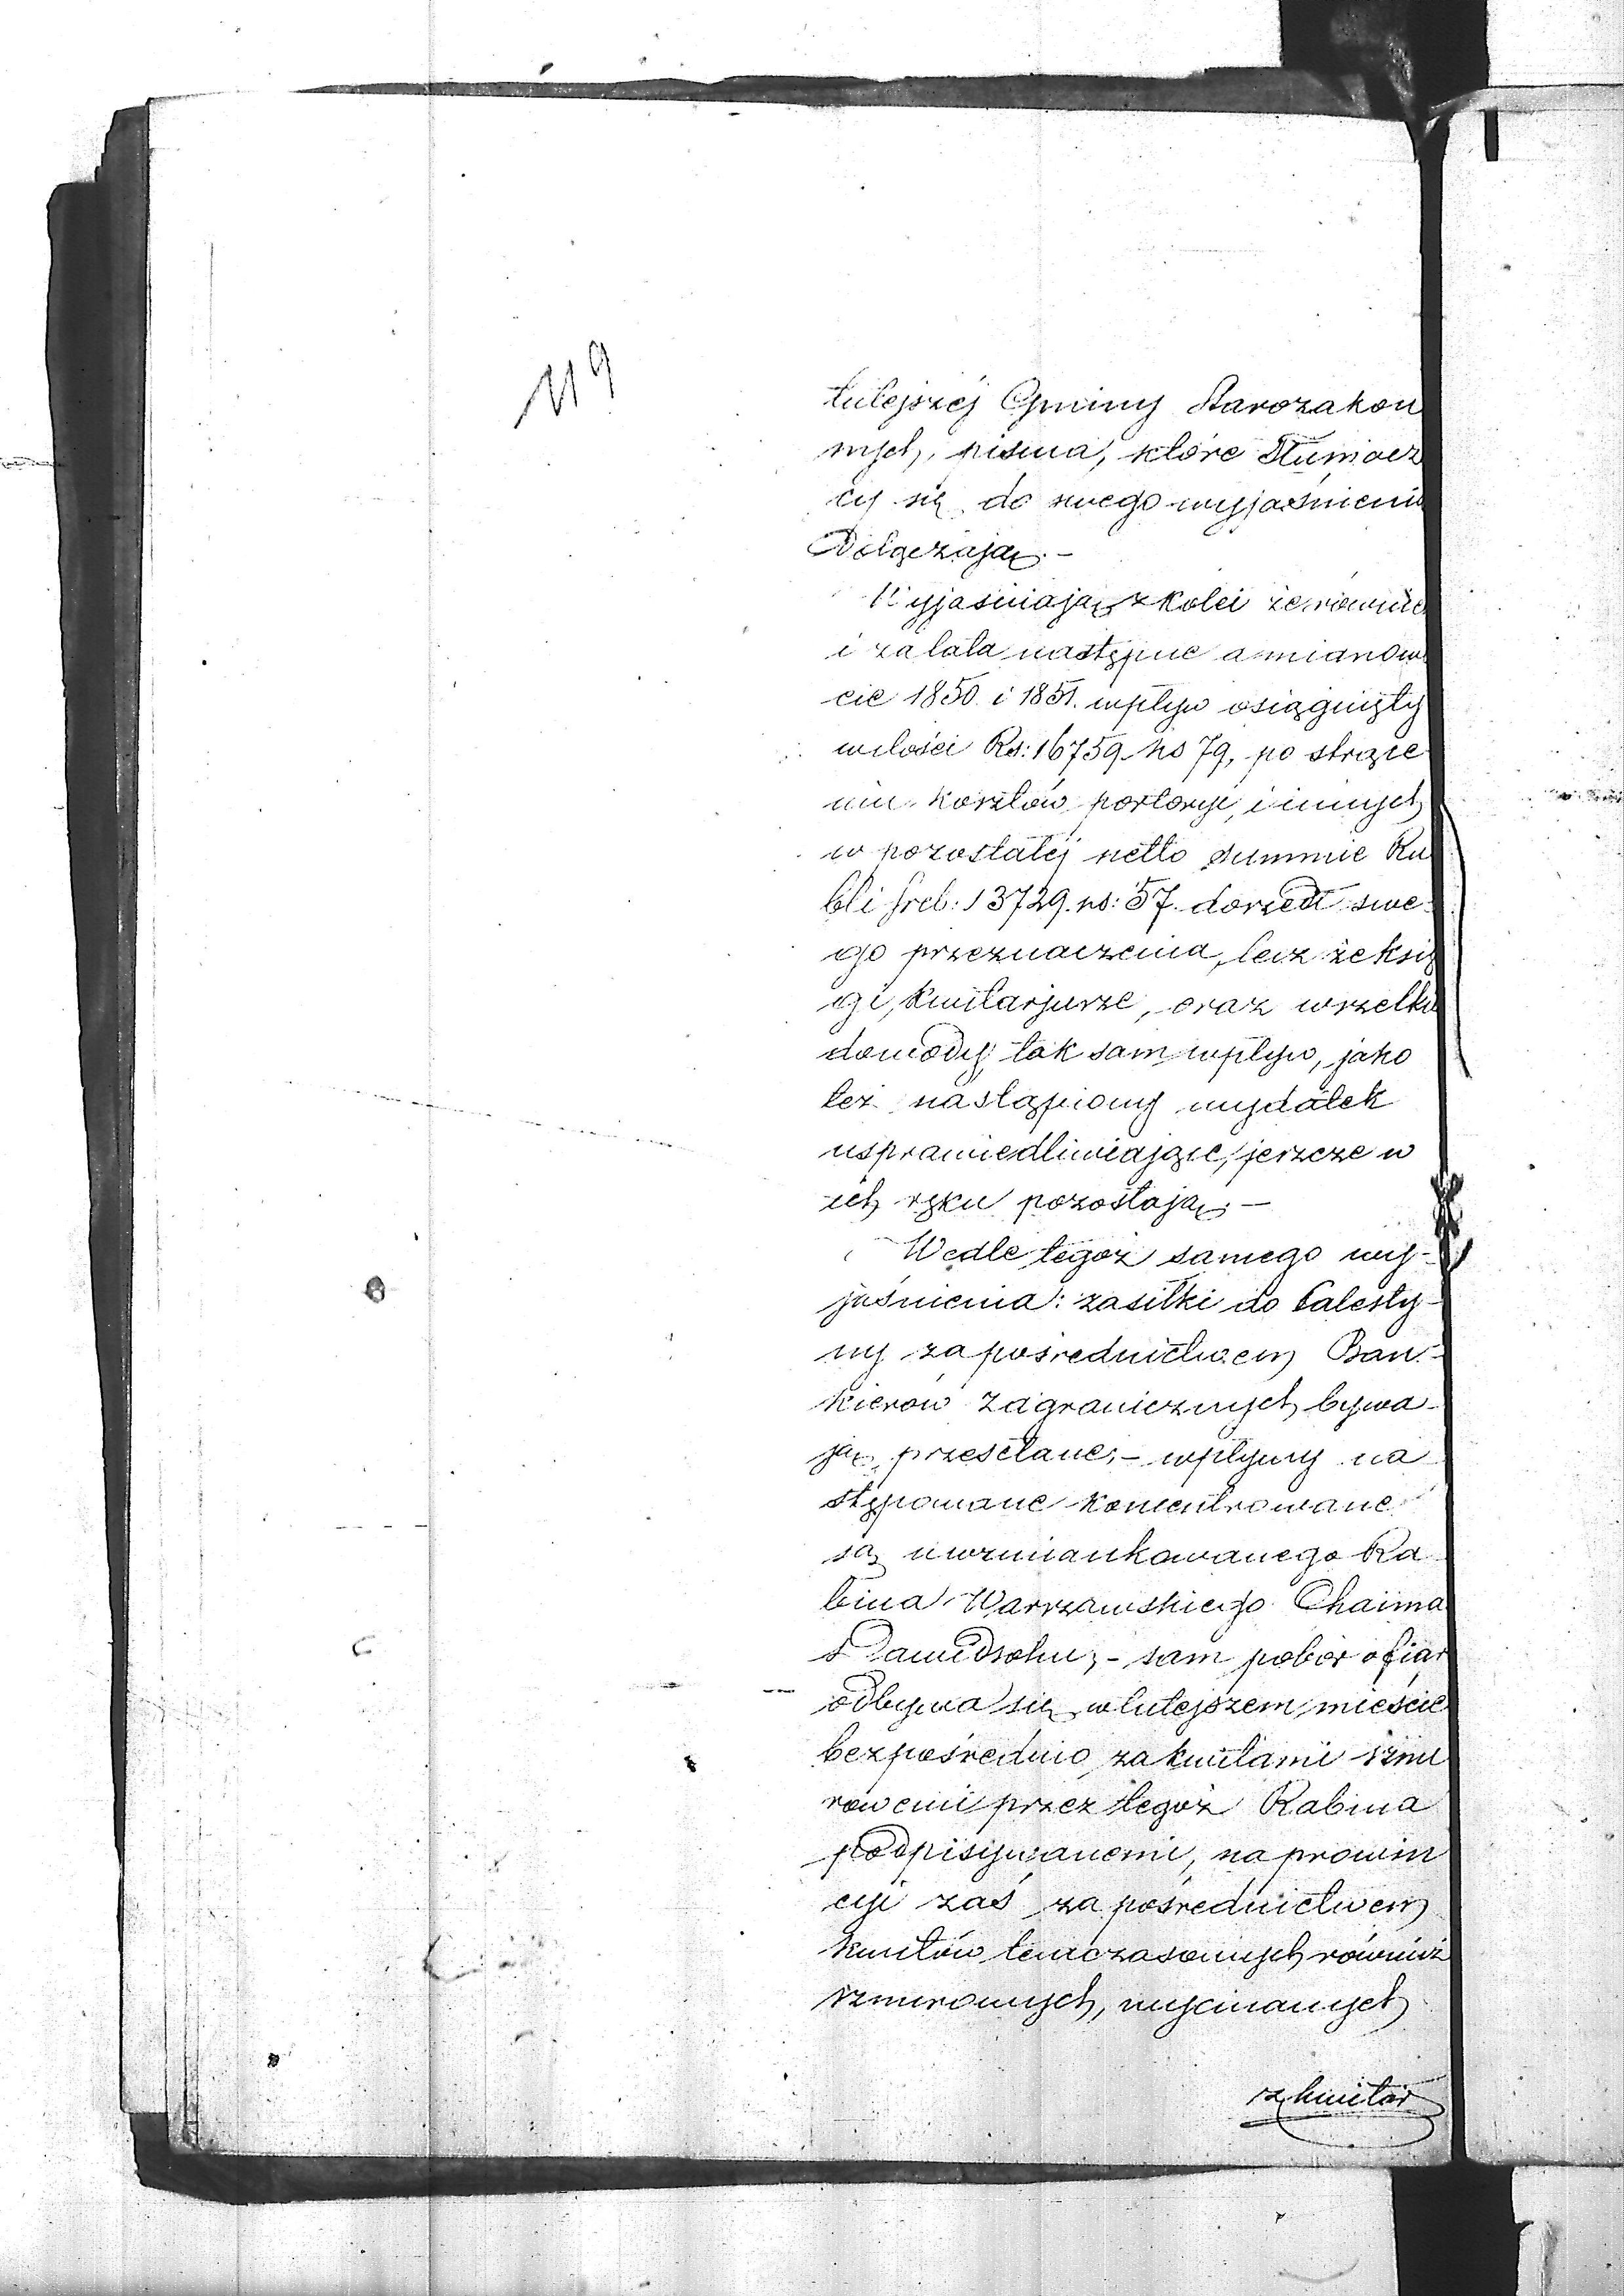 119
tutejszéj Gminy Starozakon
nych, pisma, które Tłumacz
cy się do swego wyjaśnienia
Dołączają. –
Wyjaśniają z kolei że równie
i za lata następne a mianowi
cie 1850 i 1851. wpływ osiągnięty
w ilości Rs: 16759 ks 79, po strące
niu kosztów portoryi, i innych
w pozostałéj netto summie Ru
bli sreb: 13729. ks: 57. doszedł swe-
go przeznaczenia, lecz że księ
gi, kwitarjusze, oraz wszelkie
dowody, tak sam wpływ, jako
też nastąpiony wydatek
usprawiedliwiające, jeszcze w
ich ręku pozostają. –
Wedle tegoż samego wy-
jaśnienia: zasiłki do Palesty-
ny za pośrednictwem Ban-
kierów Zagranicznych bywa-
ją przesłane; – wpływy na
stępowane koncentrowane
są u wzmiankowanego Ra
bina Warszawskiego Chaima
Dawidsohn; – sam pobór ofiar
odbywa się w tutejszem mieście
bezpośrednio za kwitami sznu
rowemi przez tegoż Rabina
podpisywanemi, na prowin
cyi zaś za pośrednictwem
kwitów tymczasowych również
sznurowych, wycinanych
z kwitar